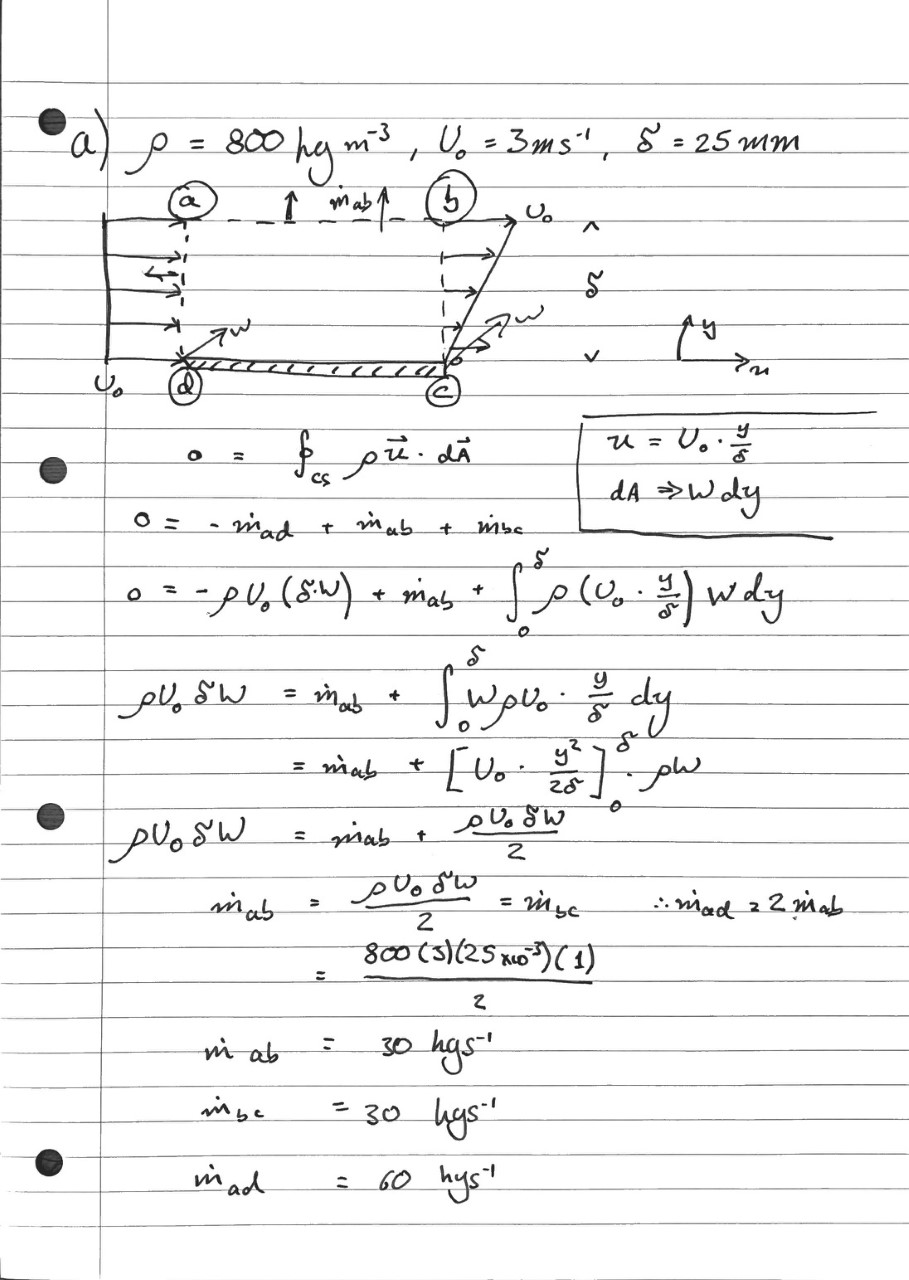 a) ρ = 800 kg m⁻³ , U₀ = 3 ms⁻¹ , δ = 25 mm
a ṁab b U₀
δ
W W y
U₀ d c x
0 = ∮cs ρu⃗ · dA⃗
u = U₀ · y/δ
dA ⇒ W dy
0 = - ṁad + ṁab + ṁbc
0 = - ρU₀(δ·W) + ṁab + ∫₀^δ ρ(U₀ · y/δ) W dy
ρU₀ δW = ṁab + ∫₀^δ WρU₀ · y/δ dy
= ṁab + [U₀ · y²/2δ]₀^δ · ρW
ρU₀ δW = ṁab + ρU₀ δW/2
ṁab = ρU₀ δW/2 = ṁbc ∴ ṁad = 2 ṁab
= 800(3)(25×10⁻³)(1)/2
ṁab = 30 kgs⁻¹
ṁbc = 30 kgs⁻¹
ṁad = 60 kgs⁻¹